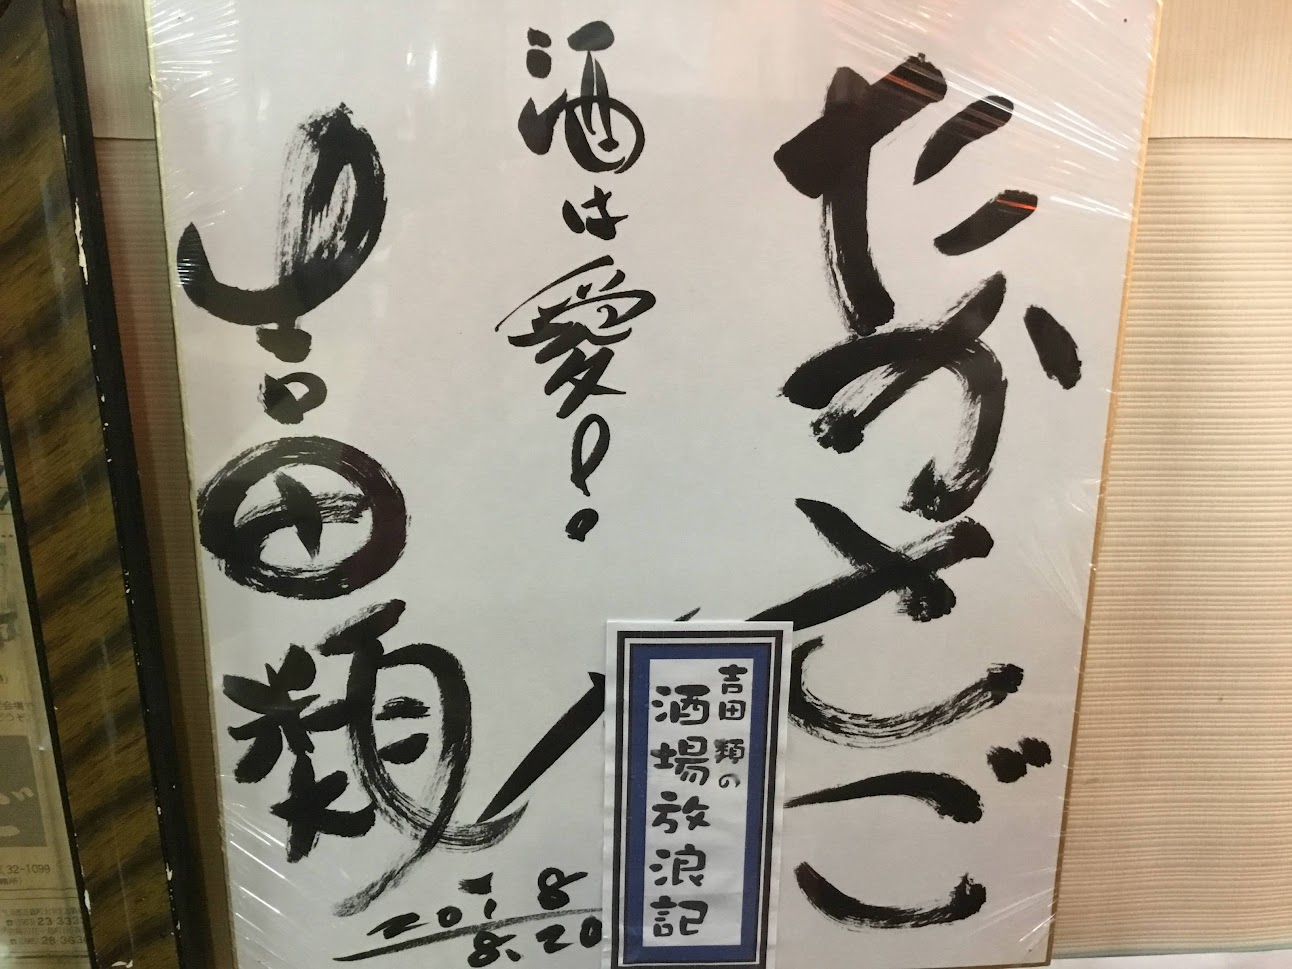 たかさご
酒は愛!
吉田類
2018
8.20
吉田類の
酒場放浪記
32-1099